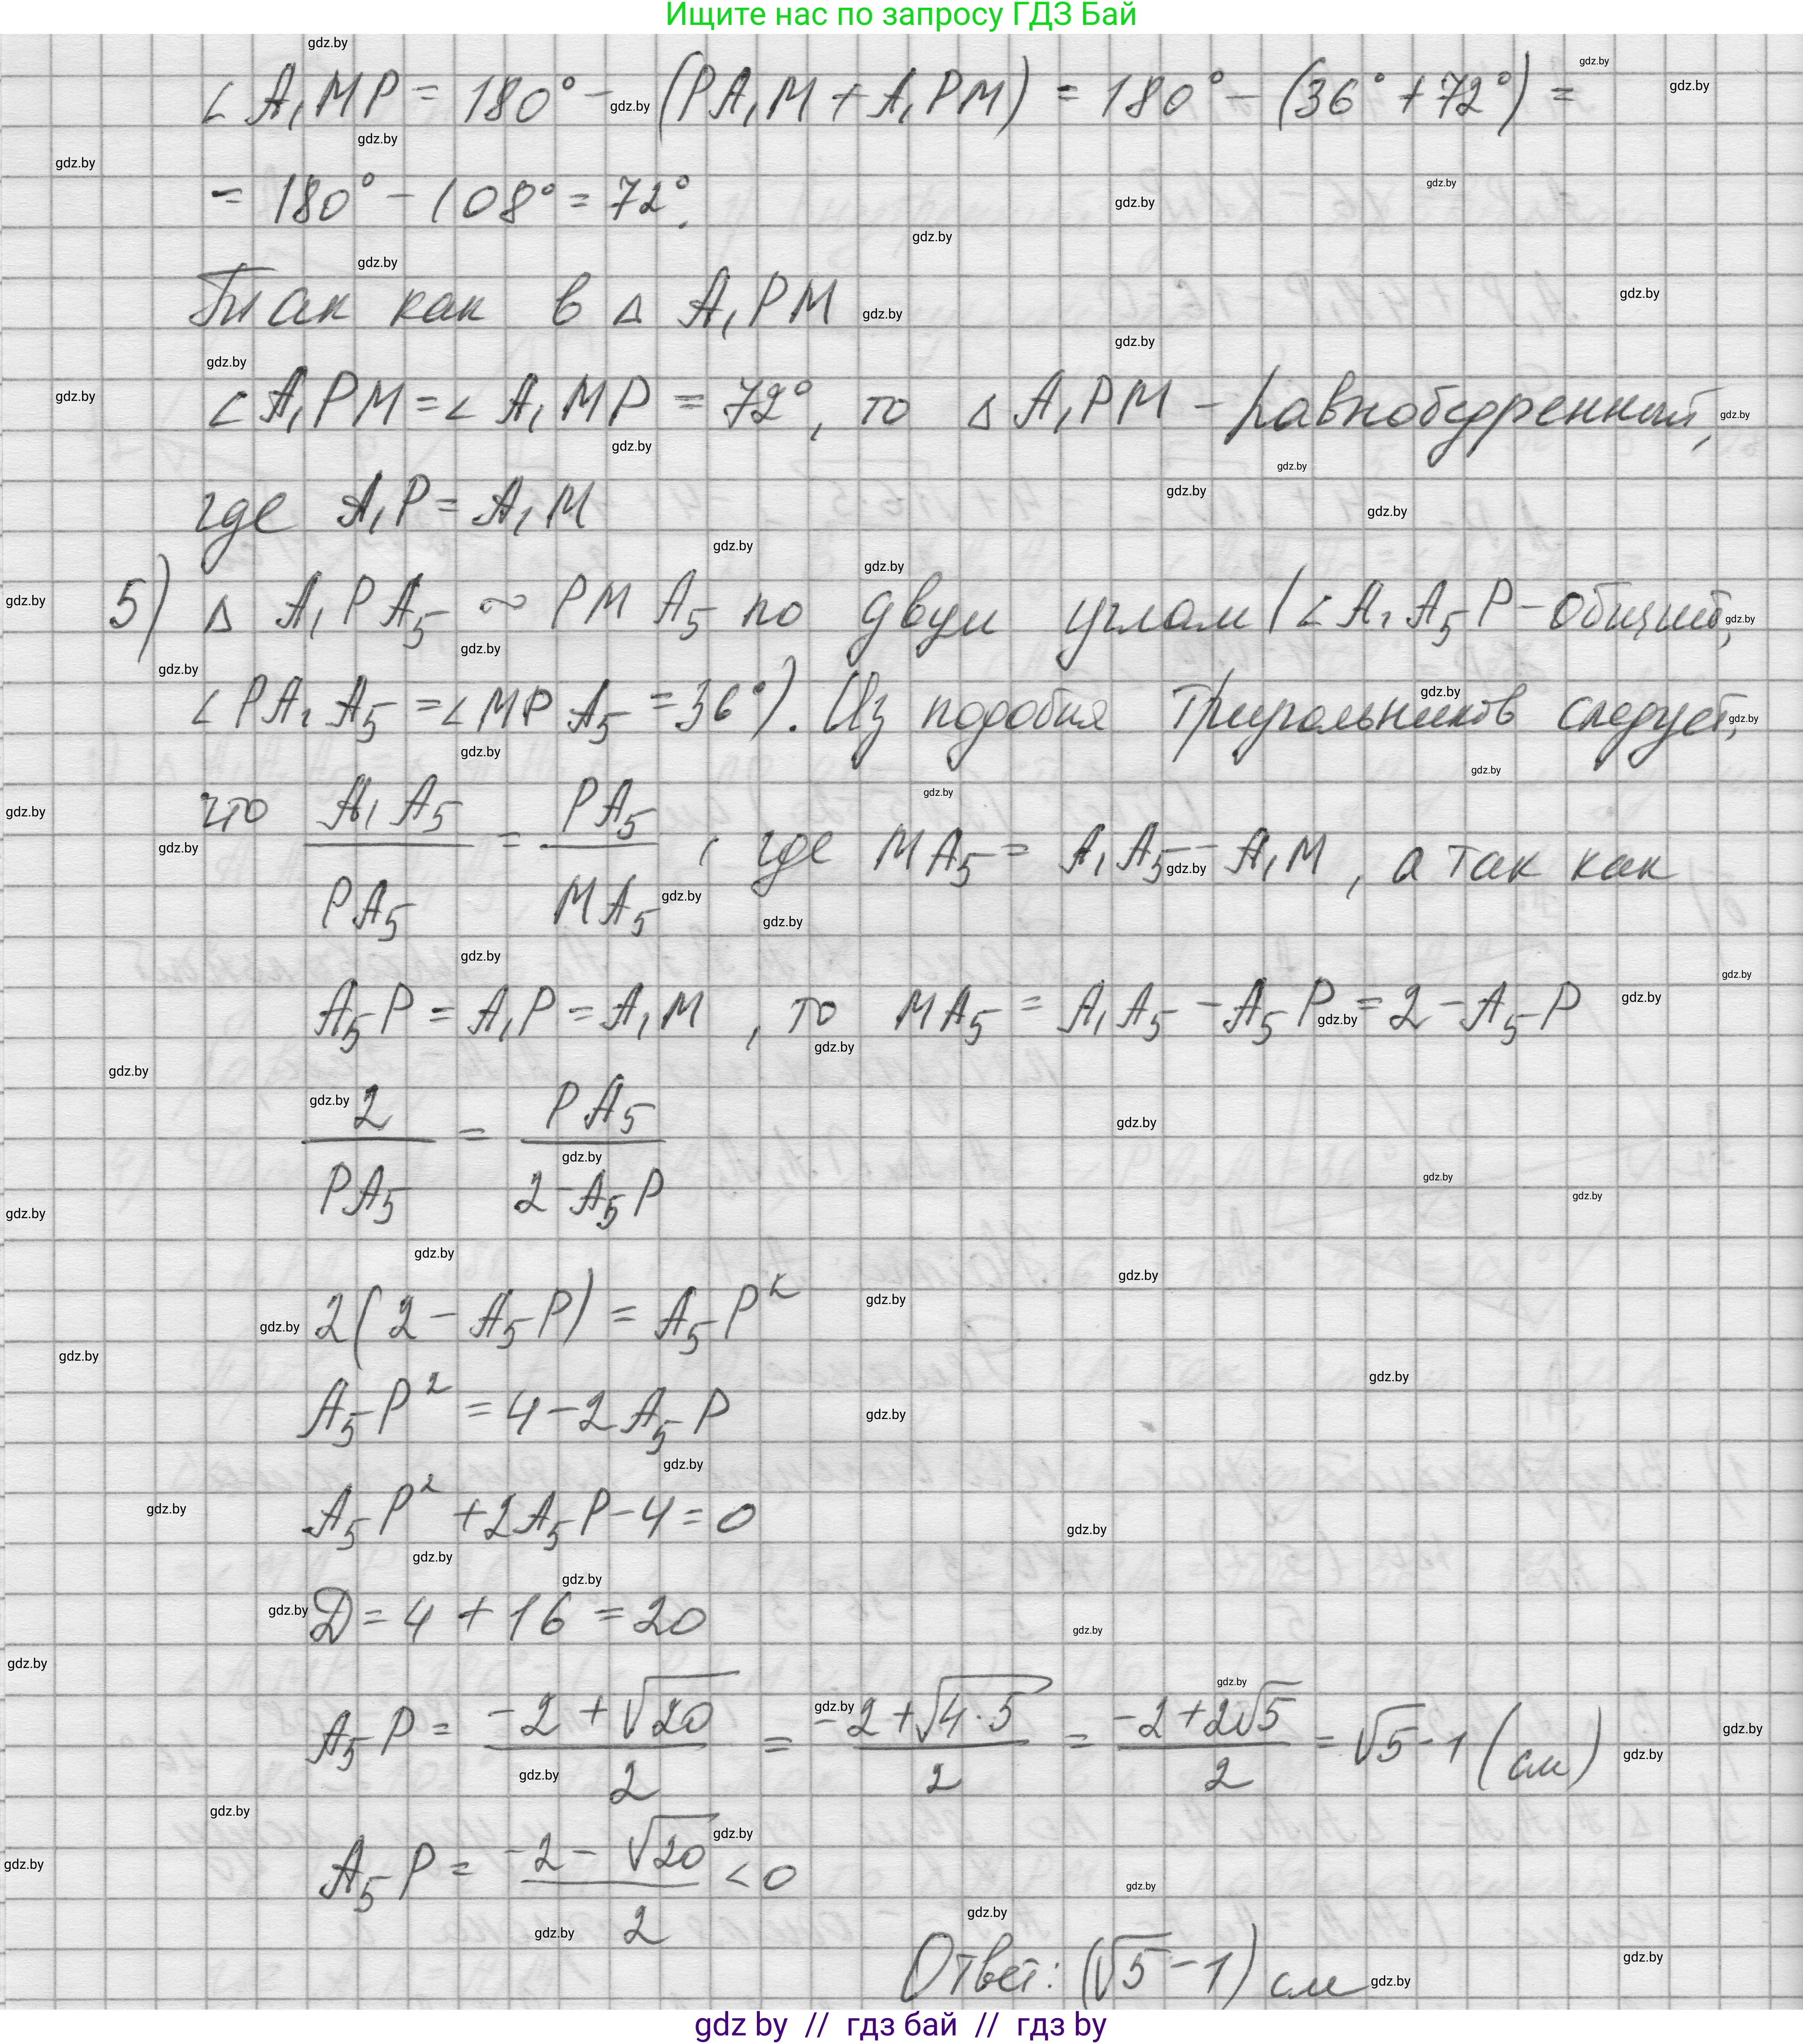 Ищите нас по запросу ГДЗ Бай
∠ A₁MP = 180° - (PA₁M + A₁PM) = 180° - (36° + 72°) =
= 180° - 108° = 72°.
Так как в Δ A₁PM
∠ A₁PM = ∠ A₁MP = 72°, то Δ A₁PM - равнобедренный,
где A₁P = A₁M
5) Δ A₁PA₅ ∾ PMA₅ по двум углам (∠ A₁A₅P - общий,
∠ PA₁A₅ = ∠ MPA₅ = 36°). Из подобия треугольников следует,
что A₁A₅/PA₅ = PA₅/MA₅, где MA₅ = A₁A₅ - A₁M, а так как
A₅P = A₁P = A₁M, то MA₅ = A₁A₅ - A₅P = 2 - A₅P
2/PA₅ = PA₅/(2 - A₅P)
2(2 - A₅P) = A₅P²
A₅P² = 4 - 2A₅P
A₅P² + 2A₅P - 4 = 0
D = 4 + 16 = 20
A₅P = (-2 + √20)/2 = (-2 + √(4·5))/2 = (-2 + 2√5)/2 = √5 - 1 (см)
A₅P = (-2 - √20)/2 < 0
Ответ: (√5 - 1) см
gdz by // гдз бай // гдз by